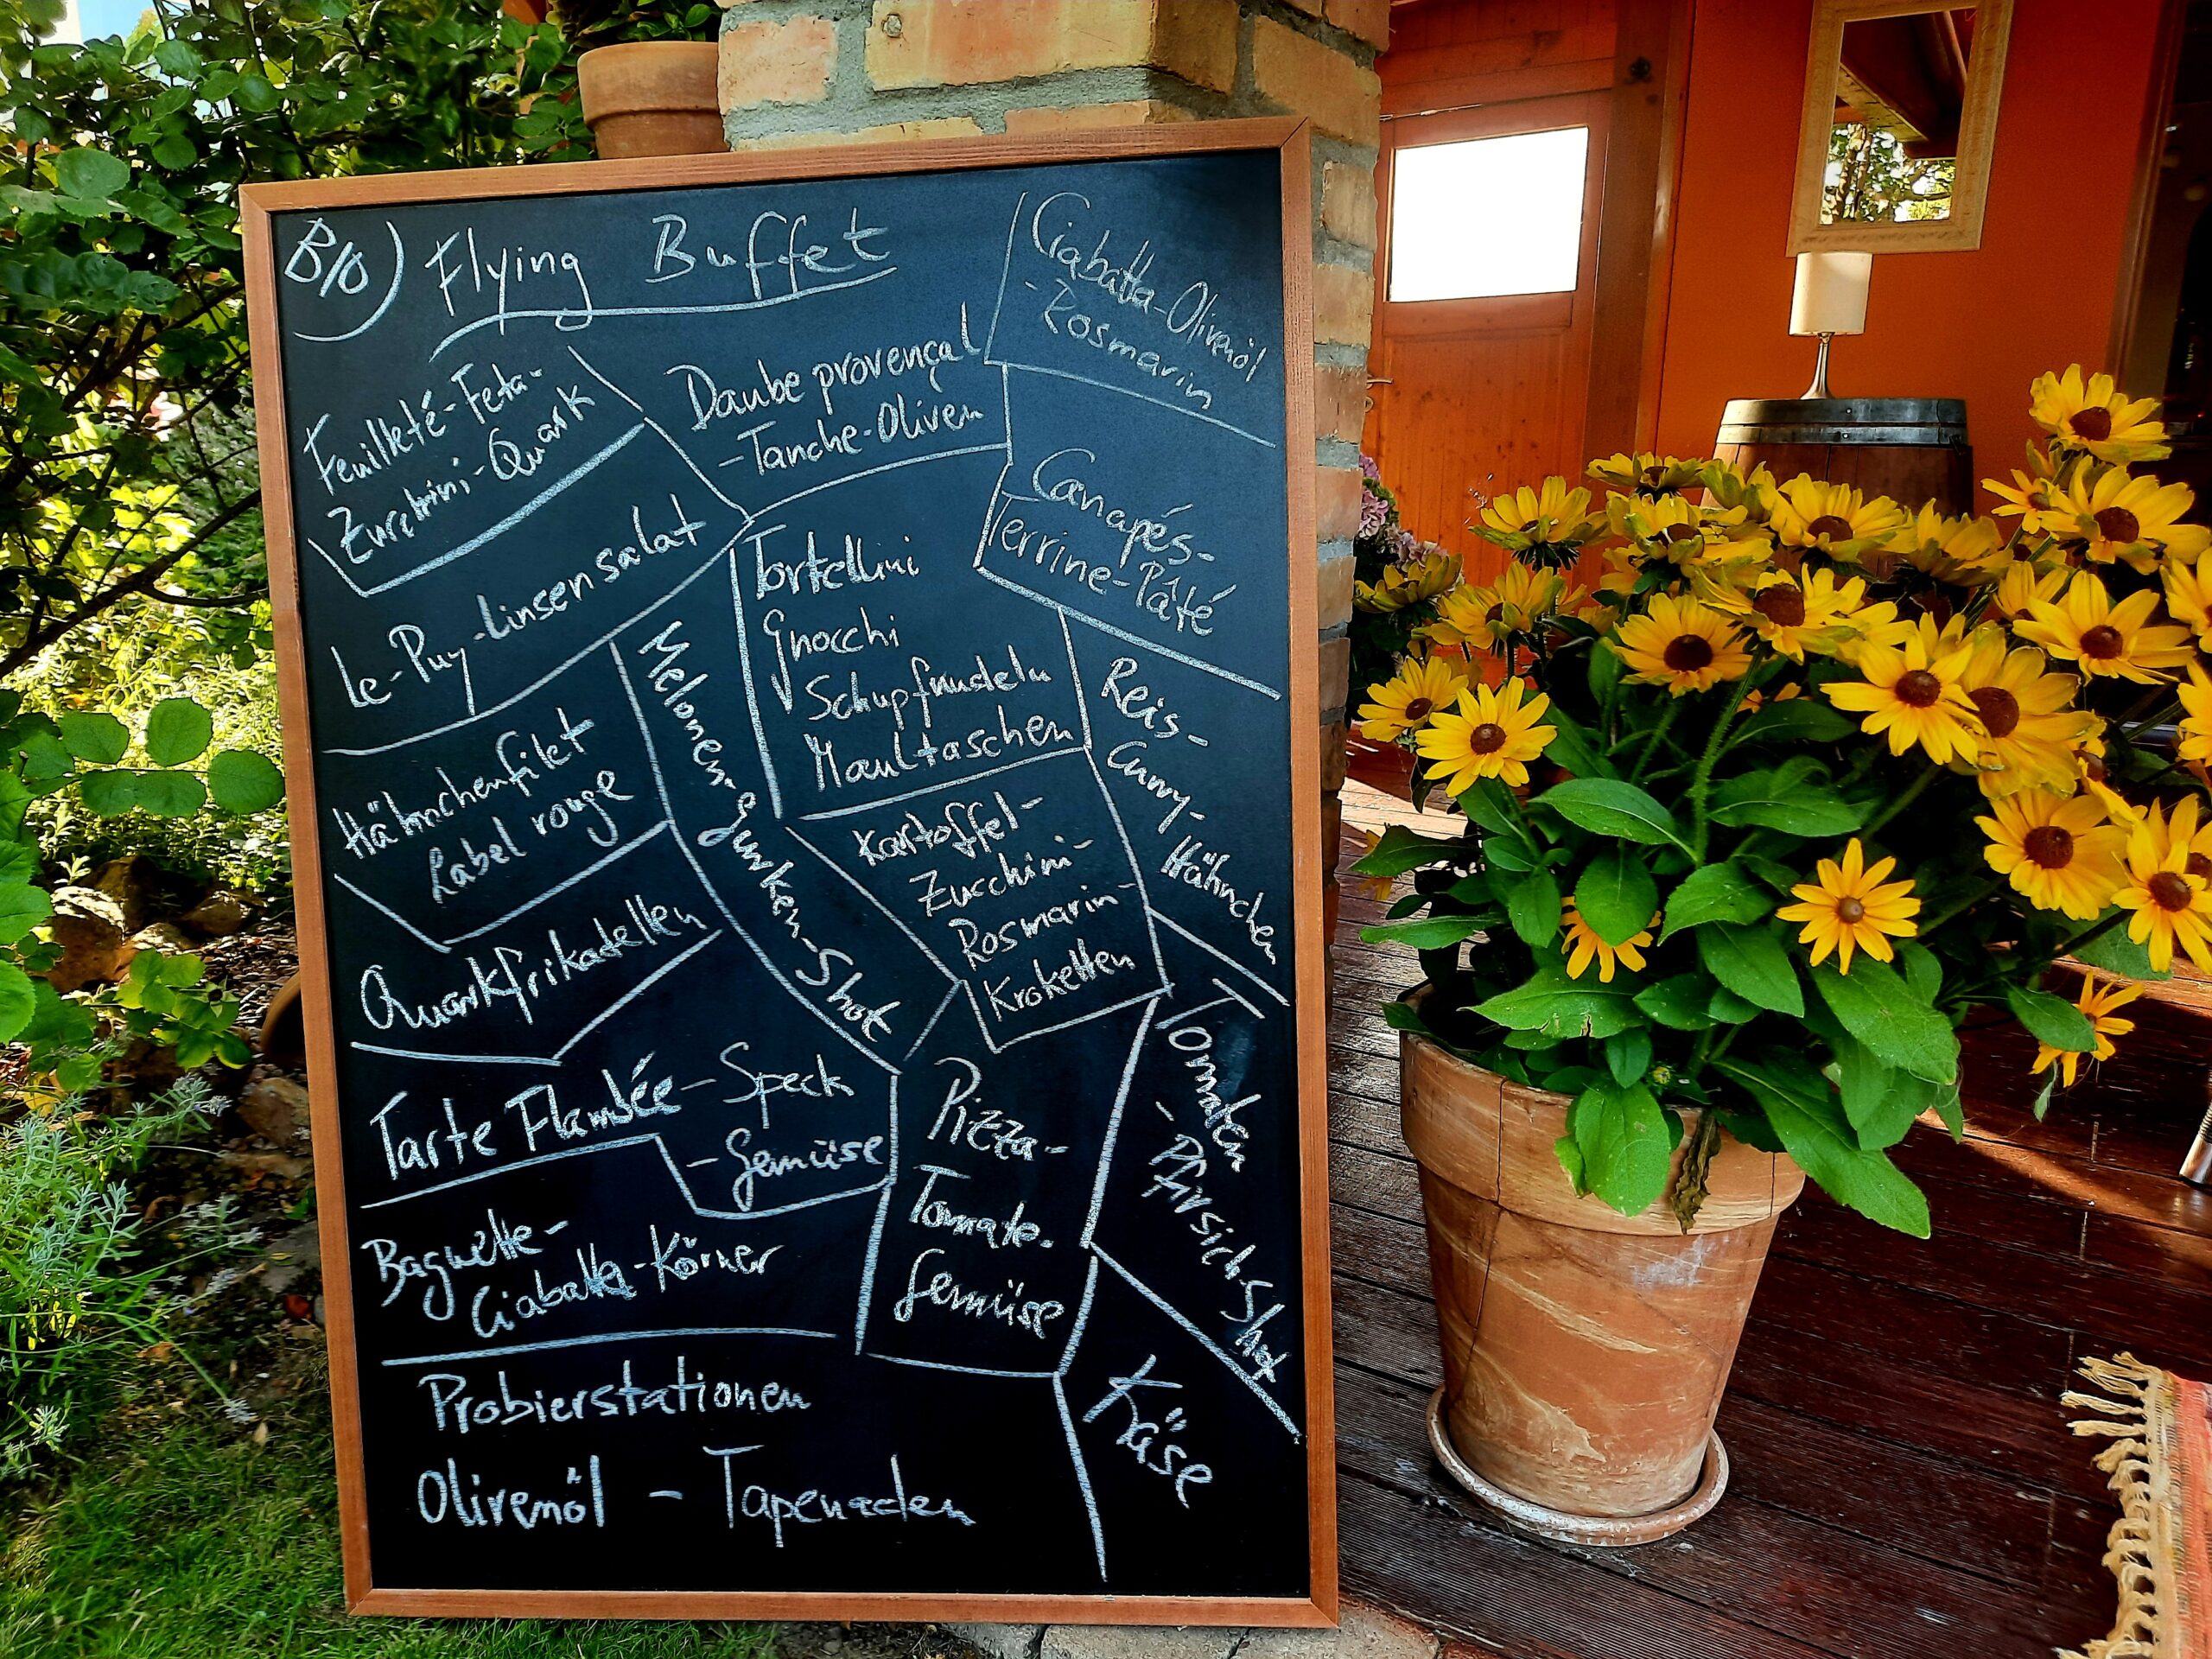 BIO) Flying Buffet
Ciabatta-Olivenöl
-Rosmarin
Feuilleté-Feta-
-Quark
Daube provençal
-Tanche-Oliven
Canapés-
Terrine-Pâté
Le-Puy-Linsensalat
Tortellini
Gnocchi
Schupfnudeln
Maultaschen
Melonen-Gurken-Shot
Reis-
Curry-
Hähnchen
Hähnchenfilet
Label rouge
Kartoffel-
Zucchini-
Rosmarin-
Kroketten
Quarkfrikadellen
Tarte Flambée-Speck
-Gemüse
Pizza-
Tomate-
Gemüse
Tomaten
-Pfirsich-Shot
Baguette-
Ciabatta-Körner
Käse
Probierstationen
Olivenöl - Tapenaden